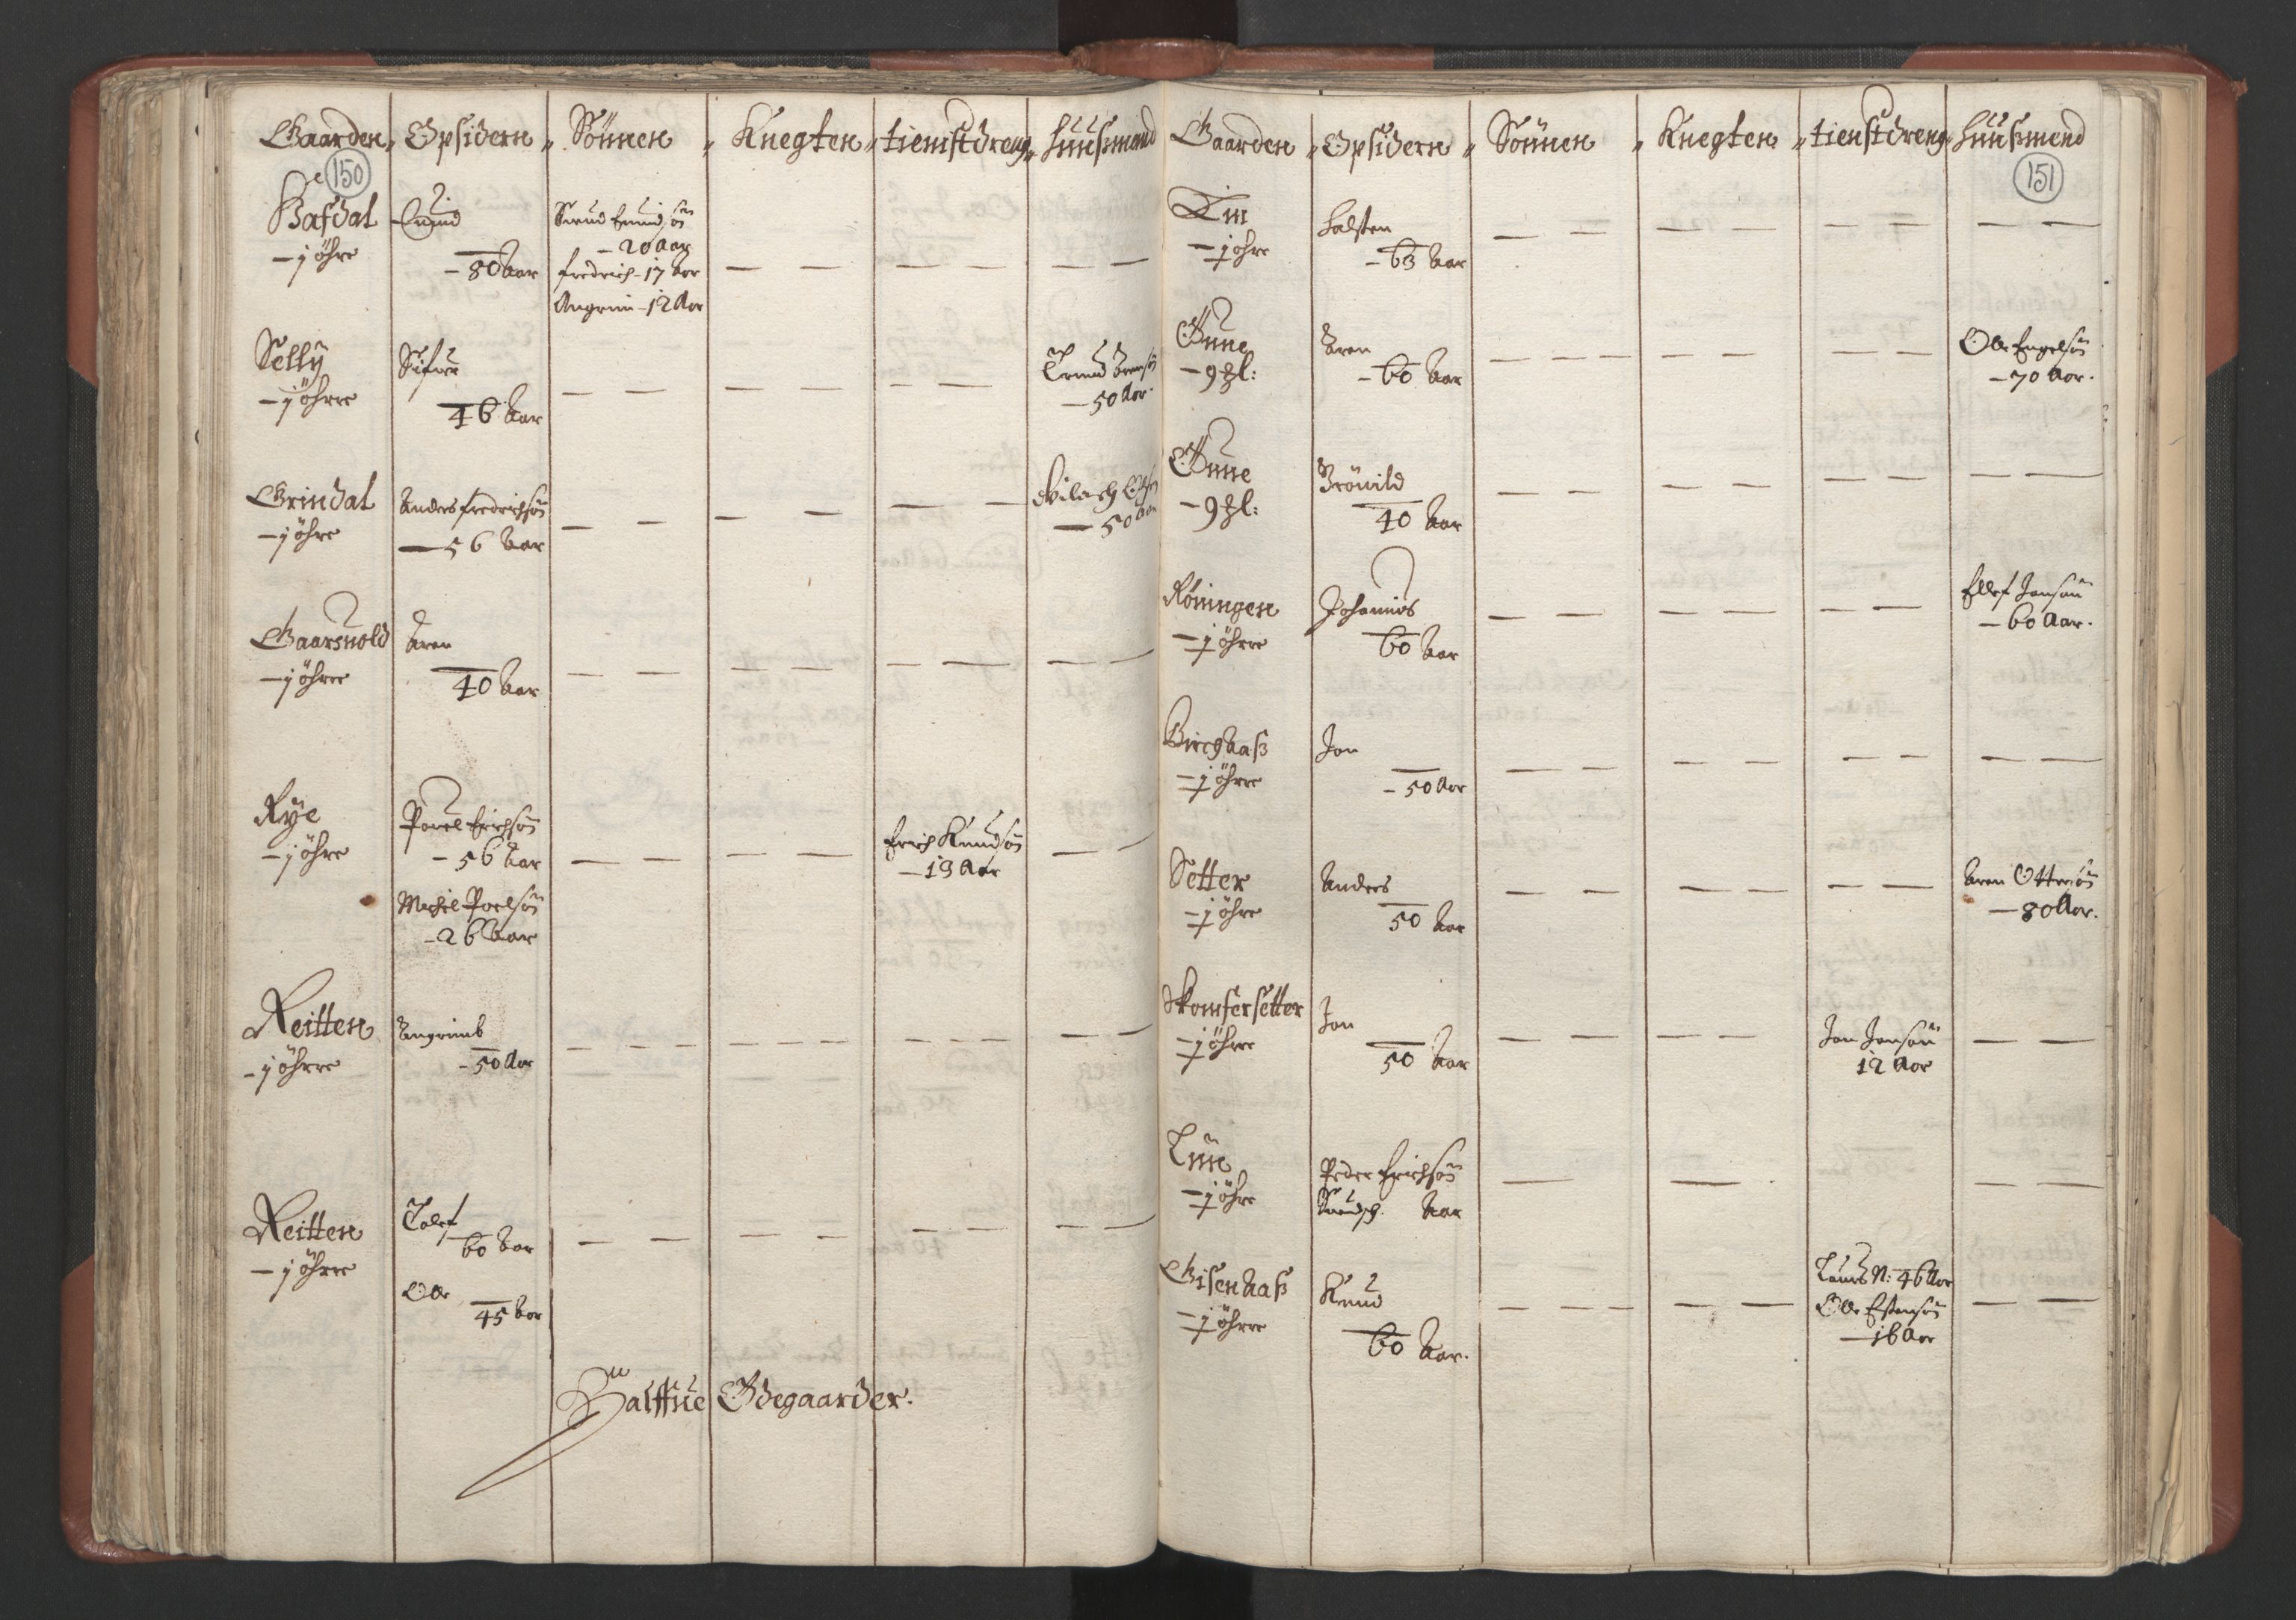 Gaarden „ Opsidern „ Sönnen „ Knegten „ tienistdreng „ Huusmend
150
Bafdal
– j öhre
Emind
– 80 Aar
Emindsön
– 20 Aar
fredrich – 17 Aar
Angrim – 12 Aar
Selly
– j öhre
Sifuer
46 Aar
– 50 Aar.
Grindal
– j öhre
Anders fredrichsön
– 56 Aar
– 50 Aar
Gaarsuold
– j öhre
Aren
40 Aar
Rye
– j öhre
Pouel Erichsön
– 56 Aar
Michel Poelsön
– 26 Aar
Erich Knudsön
– 19 Aar
Reitten
– j öhre
Angrimb
– 50 Aar
Reitten
– j öhre
Tolef
60 Aar
Ole
45 Aar
Halffue Ödegaarder.
Gaarden „ Opsidern „ Sönnen „ Knegten „ tienstdreng „ Huusmend
151
– j öhre
Halsten
– 63 Aar
Gune
– 9 ℔l:
Aren
– 60 Aar
Ole Engelsön
– 70 Aar.
Gune
– 9 ℔l:
Brönild
40 Aar
Röningen
– j öhre
Johannes
60 Aar
Ellef Jonsön
– 60 Aar.
Birchaas
– j öhre
Jon
– 50 Aar
Setter
– j öhre
Anders
50 Aar
Aren Ottersön
– 80 Aar.
Skomfersetter
– j öhre
Jon
50 Aar
Jon Jonsön
12 Aar
Lun
– j öhre
Peder Erichsön
Aar
Gisenaas
– j öhre
Knud
60 Aar.
Laurs N: 46 Aar
Ole Estensön
– 16 Aar